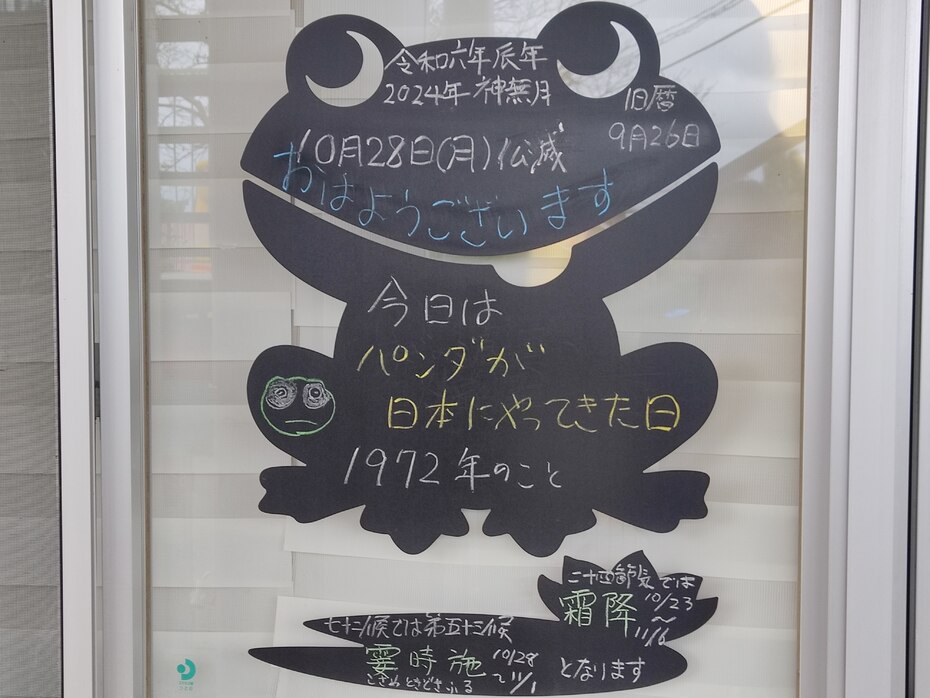 令和六年辰年
2024年 神無月
旧暦
9月26日
10月28日(月)仏滅
おはようございます
今日は
パンダが
日本にやってきた日
1972年のこと
二十四節気では
霜降 10/23
〜
11/6
七十二候では第五十三候
霎時施 10/28
〜11/1
こさめときどきふる
となります